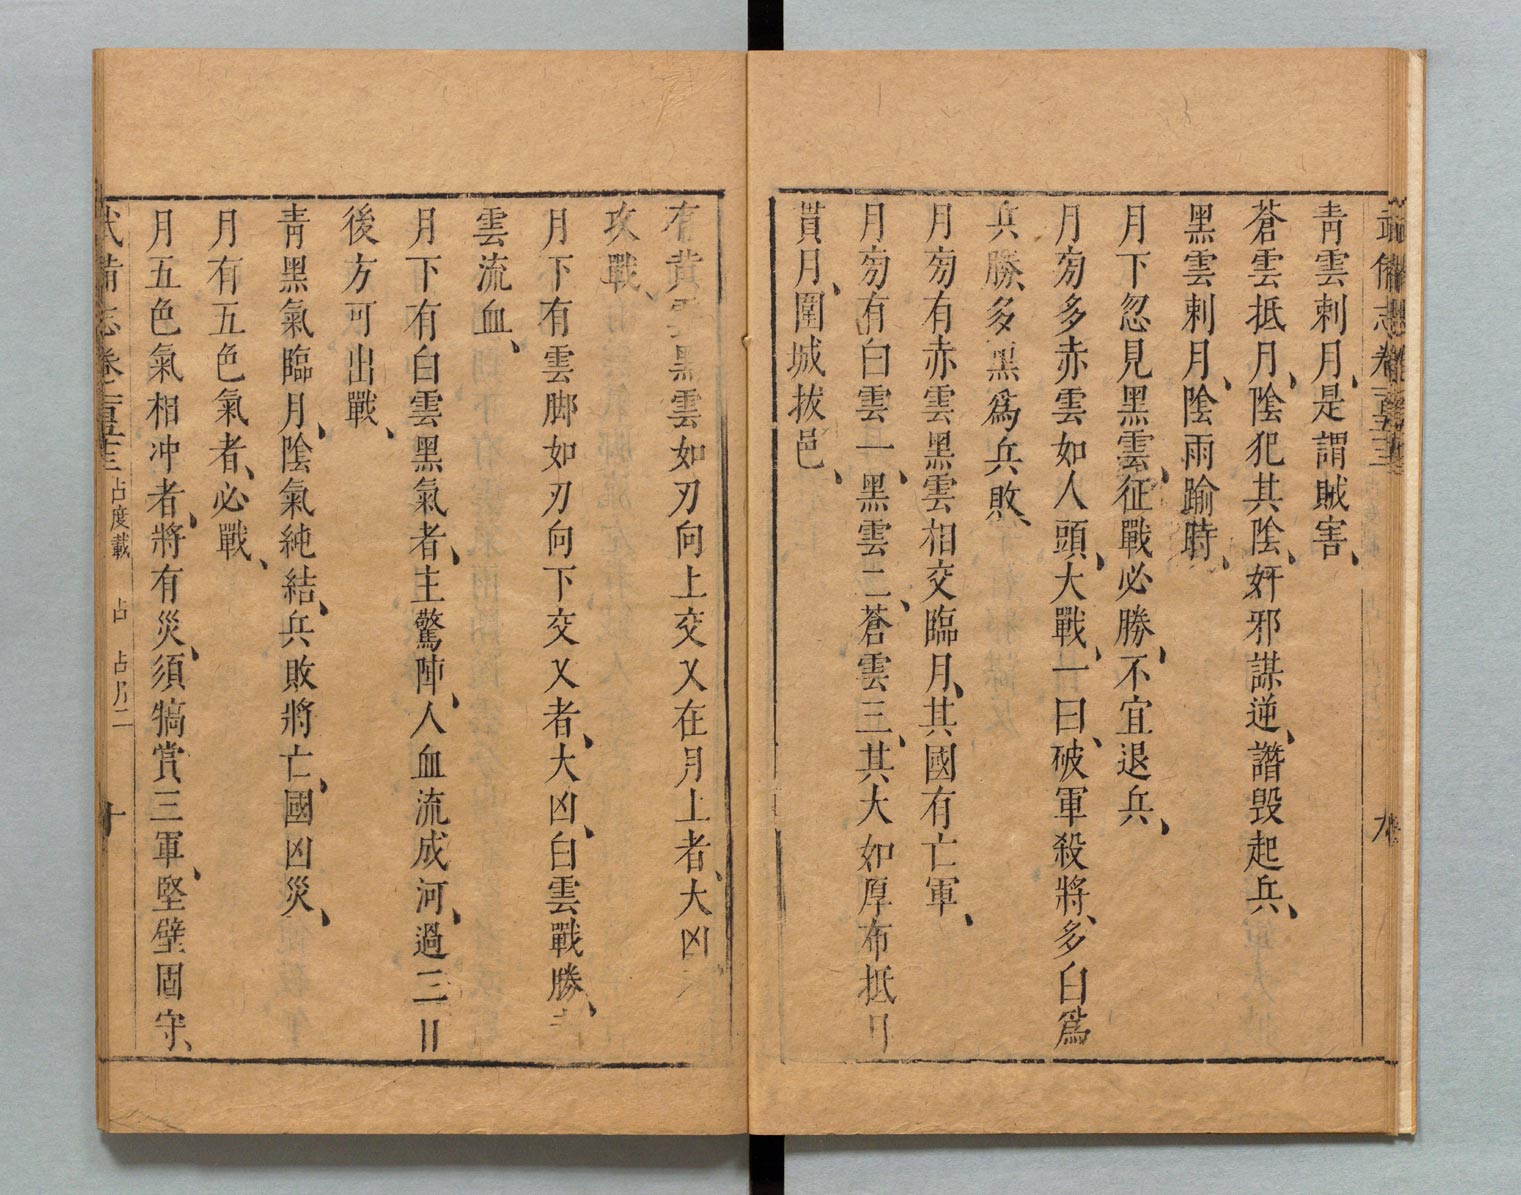 武備志卷一百五十三
九
青雲刺月、是謂賊害、
蒼雲抵月、陰犯其陰、奸邪謀逆、譖毀起兵、
黑雲刺月、陰雨踰時、
月下忽見黑雲、征戰必勝、不宜退兵、
月旁多赤雲如人頭、大戰、一曰、破軍殺將、多白爲
兵勝、多黑爲兵敗、
月旁有赤雲黑雲相交臨月、其國有亡軍、
月旁有白雲一、黑雲二、蒼雲三、其大如厚布抵月
貫月、圍城拔邑、
有黃雲黑雲如刃向上交叉在月上者、大凶
攻戰、
月下有雲脚如刃向下交叉者、大凶、白雲戰勝、
雲流血、
月下有白雲黑氣者、主驚陣、人血流成河、過三日
後方可出戰、
青黑氣臨月、陰氣純結、兵敗將亡、國凶災、
月有五色氣者、必戰、
月五色氣相冲者、將有災、須犒賞三軍、堅壁固守、
武備志卷一百五十三 占度載 占 占月二
十